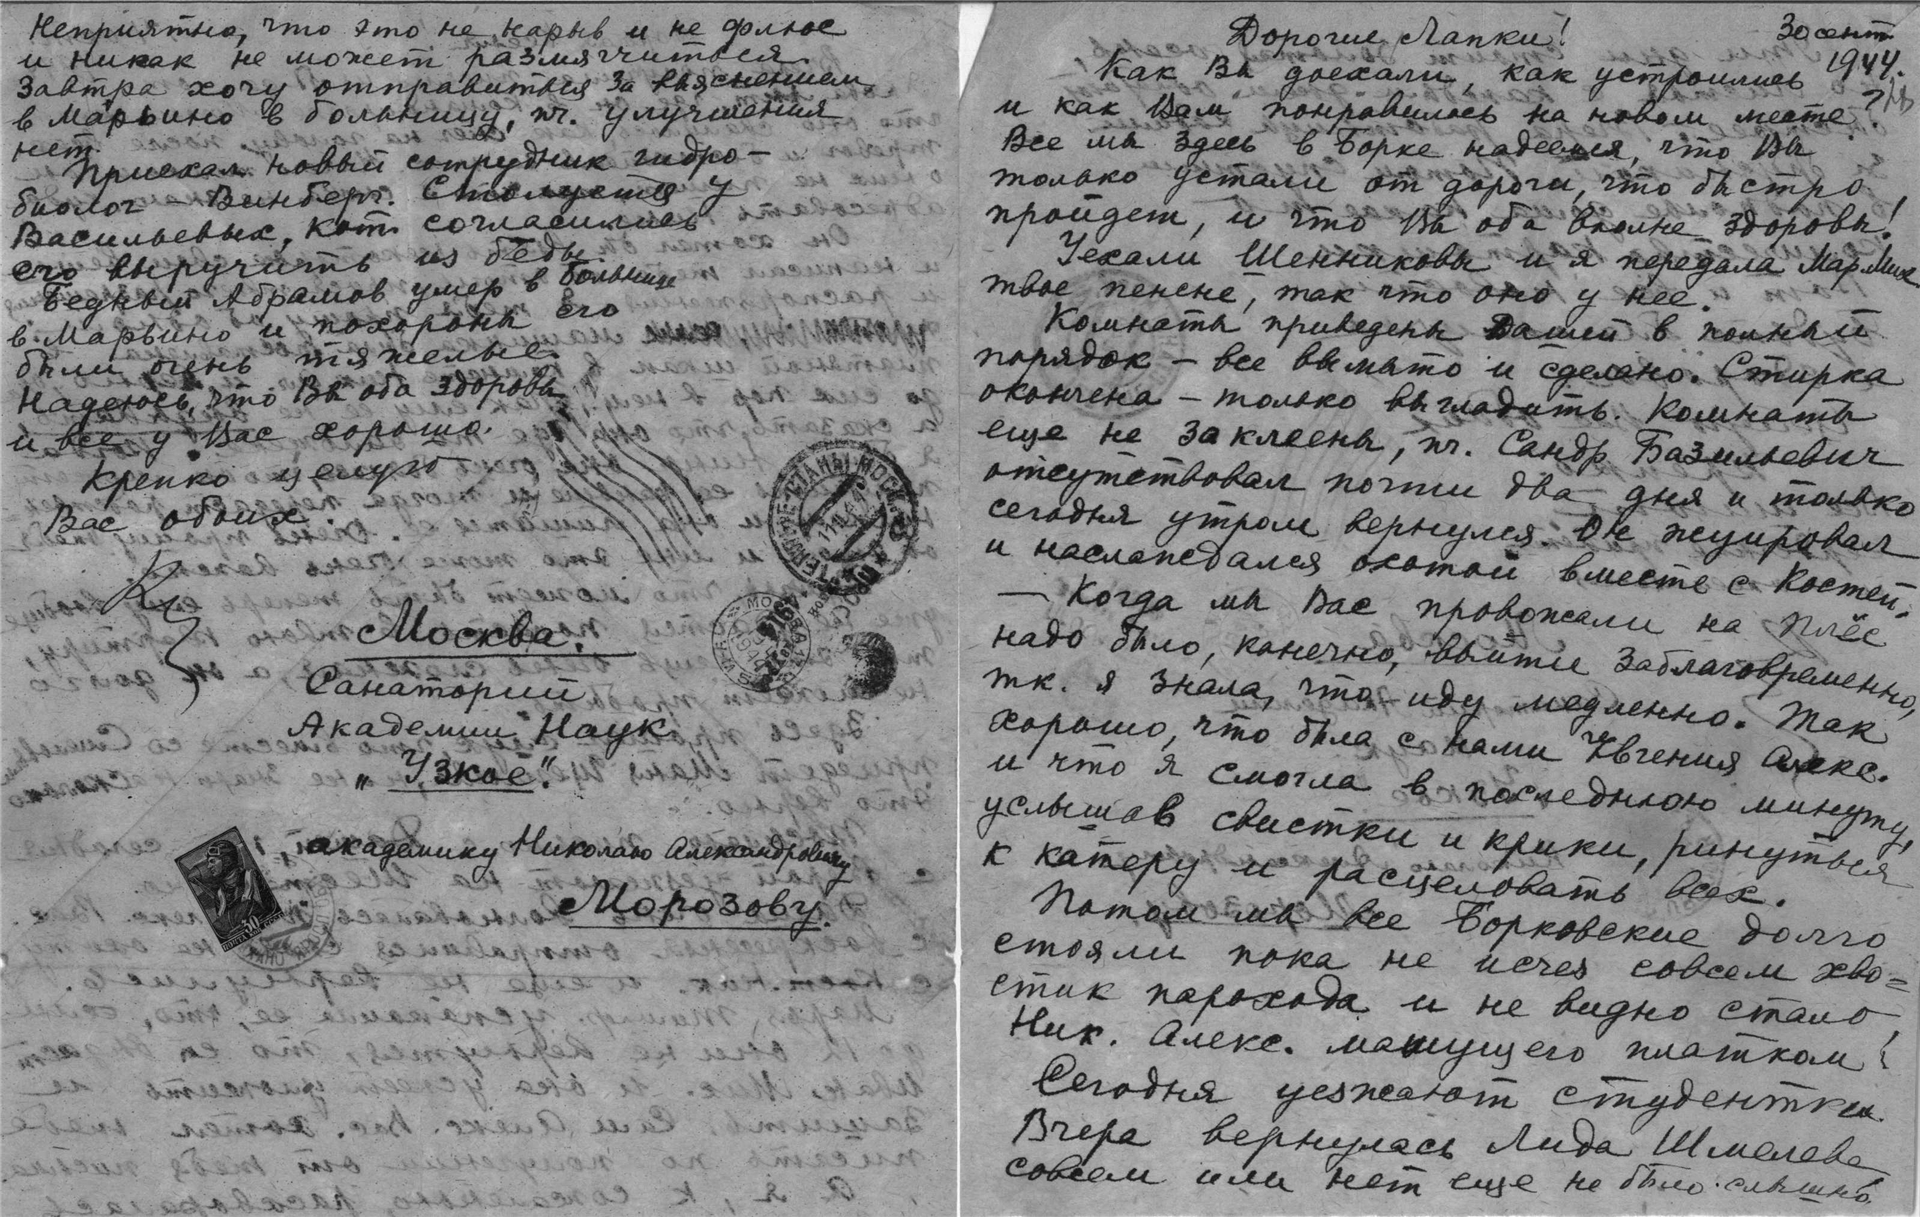 Неприятно, что это не нарыв и не флюс
и никак не может размягчиться.
Завтра хочу отправиться за выяснением
в Марьино в больницу, пч. улучшения
нет.
Приехал новый сотрудник гидро-
биолог Винберг. Столуется у
Васильевых, кот. согласились
его выручить из беды.
Бедный Абрамов умер в больнице
в Марьино и похороны его
были очень тяжелые.
Надеюсь, что Вы оба здоровы
и все у Вас хорошо.
Крепко целую
Вас обоих.
Москва.
Санаторий
Академии Наук
„Узкое".
академику Николаю Александровичу
Морозову.
30
Дорогие Лапки!
30 сент
1944.
Как Вы доехали, как устроились
и как Вам понравилось на новом месте?
Все мы здесь в Борке надеемся, что Вы
только устали от дороги, что быстро
пройдет, и что Вы оба вполне здоровы!
Уехали Шенниковы и я передала Мар. Мих.
твое пенсне, так что оно у нее.
Комнаты приведены Дашей в полный
порядок – все вымыто и сделано. Стирка
окончена – только выгладить. Комнаты
еще не заклеены, пч. Сандр Базильевич
отсутствовал почти два дня и только
сегодня утром вернулся. Он жуировал
и наслаждался охотой вместе с Костей.
— Когда мы Вас провожали на плёс
надо было, конечно, выйти заблаговременно,
тк. я знала, что иду медленно. Так
хорошо, что была с нами Евгения Алекс.
и что я смогла в последнюю минуту,
услышав свистки и крики, ринуться
к катеру и расцеловать всех.
Потом мы все Борковские долго
стояли пока не исчез совсем хво=
стик парохода и не видно стало
Ник. Алекс. машущего платком!
Сегодня уезжают студентки.
Вчера вернулась Лида Шмелева
совсем или нет еще не было слышно.